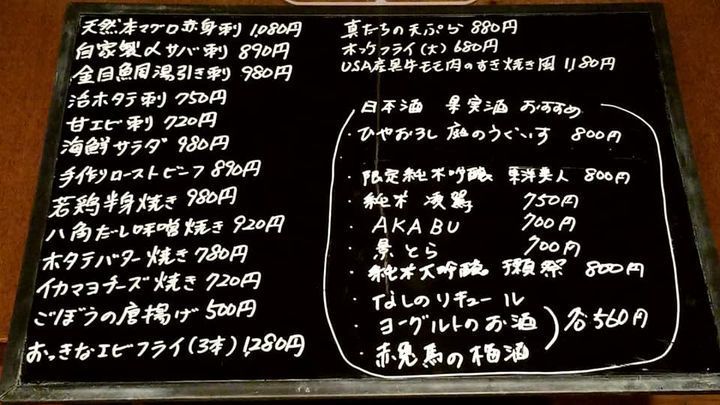 天然本マグロ赤身刺 1,080円
自家製〆サバ刺 890円
金目鯛湯引き刺 980円
活ホタテ刺 750円
甘エビ刺 720円
海鮮サラダ 980円
手作りローストビーフ 890円
若鶏半身焼き 980円
八角たーし味噌焼き 920円
ホタテバター焼き 780円
イカマヨチーズ焼き 720円
ごぼうの唐揚げ 500円
おっきなエビフライ(3本) 1,280円
真たちの天ぷら 880円
ホッケフライ(大) 680円
USA産黒牛モモ肉のすき焼き風 1,180円
日本酒 果実酒 おすすめ
・ひやおろし 庭のうぐいす 800円
・
・限定純米吟醸 東洋美人 800円
・純米 凌駕 750円
・AKABU 700円
・景とら 700円
・純米大吟醸 獺祭 800円
・なしのリキュール
・ヨーグルトのお酒 各560円
・赤兎馬の梅酒